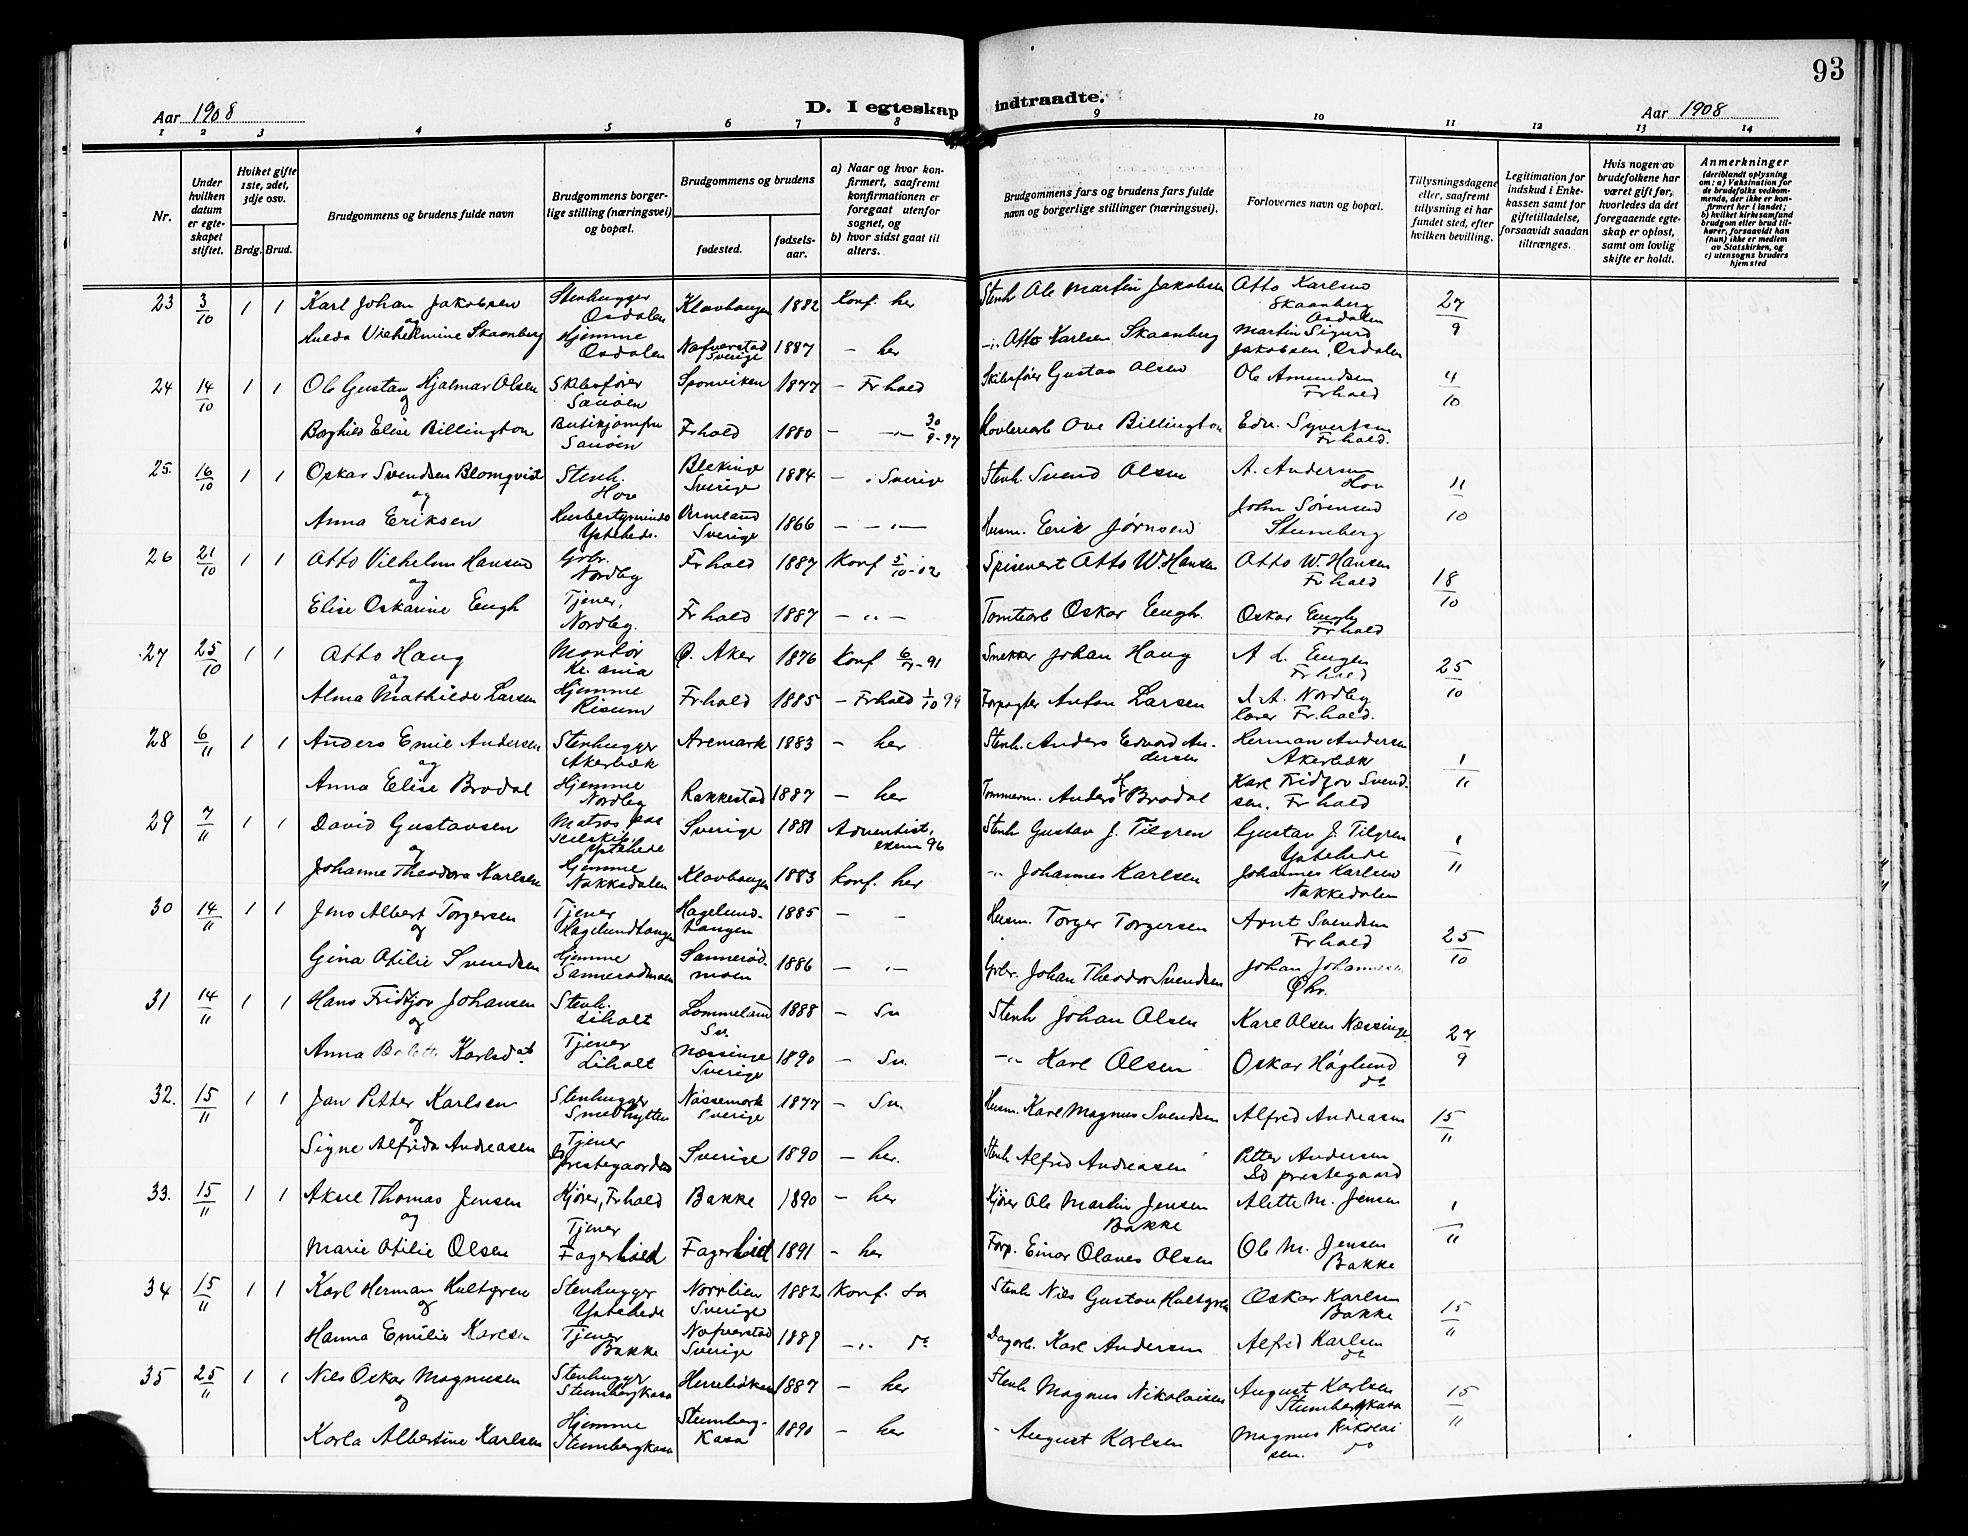 93
Aar 1908 D. I egteskap indtraadte. Aar 1908
1 2 3 4 5 6 7 8 9 10 11 12 13 14
Nr.
Under hvilken datum er egteskapet stiftet.
Hviket gifte 1ste, 2det, 3dje osv.
Brdg. Brud.
Brudgommens og brudens fulde navn
Brudgommens borgerlige stilling (næringsvei) og bopæl.
Brudgommens og brudens
fødested.
fødselsaar.
a) Naar og hvor konfirmert, saafremt konfirmationen er foregaat utenfor sognet, og
b) hvor sidst gaat til alters.
Brudgommens fars og brudens fars fulde navn og borgerlige stillinger (næringsvei).
Forlovernes navn og bopæl.
Tillysningsdagene eller, saafremt tillysning ei har fundet sted, efter hvilken bevilling.
Legitimation for indskud i Enkekassen samt for giftetilladelse, forsaavidt saadan tiltrænges.
Hvis nogen av brudefolkene har været gift før, hvorledes da det foregaaende egteskap er opløst, samt om lovlig skifte er holdt.
Anmerkninger
(deriblandt oplysning om: a) Vaksination for de brudefolks vedkommende, der ikke er konfirmert her i landet; b) hvilket kirkesamfund brudgom eller brud tilhører, forsaavidt han (hun) ikke er medlem av Statskirken, og c) utensogns bruders hjemsted
23 3/10 1 1 Karl Johan Jakobsen Stenhugger Osdalen Klavhaugen 1882 Konf. her Stenh Ole Martin Jakobsen Otto Karlsen Skaanberg Osdalen 27/9
og
Hulda Vilhelmine Skaanberg Hjemme Osdalen Nafverstad Sverige 1887 — her -"- Otto Karlsen Skaanberg Martin Sigurd Jakobsen, Osdalen
24 14/10 1 1 Ole Gustav Hjalmar Olsen Skibsfører Sauøen Sponviken 1877 — Fr hald Skibsfører Gustav Olsen Ole Amundsen Fr hald 4/10
og
Borghild Elise Billington Butikjomfru Sauøen Fr hald 1880 — -"- 30/9-97 Høvleriarb Ove Billington Edv. Syvertsen Fr hald.
25. 16/10 1 1 Oskar Svendsen Blomqvist Stenh. Hov Blekinge Sverige 1884 — i Sverige Stenh. Svend Olsen A. Andersen Hov 11/10
og
Anna Eriksen Husbestyrerinde Ystehede. Vermland Sverige 1866 — -"- Husm. Erik Jørnsen John Sørensen Stumberg
26 21/10 1 1 Otto Vilhelm Hansen Grbr. Nordby Fr hald 1887 Konf 5/10-02 Spisevert Otto W. Hansen Otto W. Hansen Fr hald 18/10
og
Elise Oskarine Eugh Tjener, Nordby. Fr hald 1887 — " — Tomtearb Oskar Eugh. Oskar Eugh Fr hald
27 25/10 1 1 Otto Haug Montør Kr.ania Ø. Aker 1876 Konf 6/9-91 Snekker Johan Haug A L. Eugen Fr hald 25/10
og
Alma Mathilde Larsen Hjemme Risum Fr.hald 1885 — Fr hald 1/10 99 Forpagter Anton Larsen L. A. Nordby lærer Fr.hald.
28 6/11 1 1 Anders Emil Andersen Stenhugger Akerbæk Aremark 1883 — her Stenh. Anders Edvard Andersen Herman Andersen Akerbæk 1/11
og
Anna Elise Brodal Hjemme Nordby Rakkestad 1887 — her Tømmerm. Anders H Brodal Karl Fridtjov Svendsen. Fr hald
29 7/11 1 1 David Gustavsen Matros paa seilskib, Ystehede Sverige 1881 Adventist, eksm 96 Stenh Gustav J. Tilgren Gustav J. Tilgren Ystehede 1/11
og
Johanne Theodora Karlsen Hjemme Nakkedalen Klavhaugen 1883 konf. her -"- Johannes Karlsen Johannes Karlsen Nakkedalen
30 14/11 1 1 Jens Albert Torgersen Tjener Hagelundhaugen Hagelundhaugen 1885 — — Husm. Torger Torgersen Arnt Svendsen Fr hald 25/10
og
Gina Otilie Svendsen Hjemme Sannerødmoen Sannerødmoen 1886 — " — Grbr. Johan Theodor Svendsen Johan Johannesen
31 14/11 1 1 Hans Fridtjov Johansen Stenh. Liholt Lommeland Sv. 1888 — Sv. Stenh Johan Olsen Karl Olsen Næssinge 27/9
og
Anna Karlsdat Tjener Liholt Næssinge Sverige 1890 — Sv. -"- Karl Olsen Oskar Høglund do
32. 15/11 1 1 Jan Petter Karlsen Stenhugger Smedhytten Nössemark Sverige 1877 — Sv. Husm. Karl Magnus Svendsen Alfred Andreasen 15/11
og
Signe Alfrida Andreasen Tjener Id prestegaarden Sverige 1890 — her. Stenh Alfred Andreasen Petter Andersen Id prestegaard
33. 15/11 1 1 Aksel Thomas Jensen Kjører, Fr hald Bakke 1890 — her Kjører Ole Martin Jensen Bakke Alette M. Jensen 1/11
og
Marie Otilie Olsen Tjener Fagerholt Fagerholt 1891 — her Forp. Einar Olaves Olsen Ole M. Jensen Bakke
34 15/11 1 1 Karl Herman Hultgren Stenhugger Ystehede Norrlien Sverige 1882 Konf. Sv Stenh Nils Gustav Hultgren Oskar Karlsen Bakke 15/11
og
Hanna Emilie Karlsen Tjener Bakke Nafverstad Sverige 1889 -"- do Dagarb. Karl Andersen Alfred Karlsen do
35 25/11 1 1 Nils Oskar Magnusen Stenhugger Stumbergkasa Herrebøkasa 1887 — her Stenh Magnus Nikolaisen August Karlsen Stumbergkasa 15/11
og
Karla Albertine Karlsen Hjemme Stumbergkasa Stumbergkasa 1890 — her - August Karlsen Magnus Nikolaisen. do